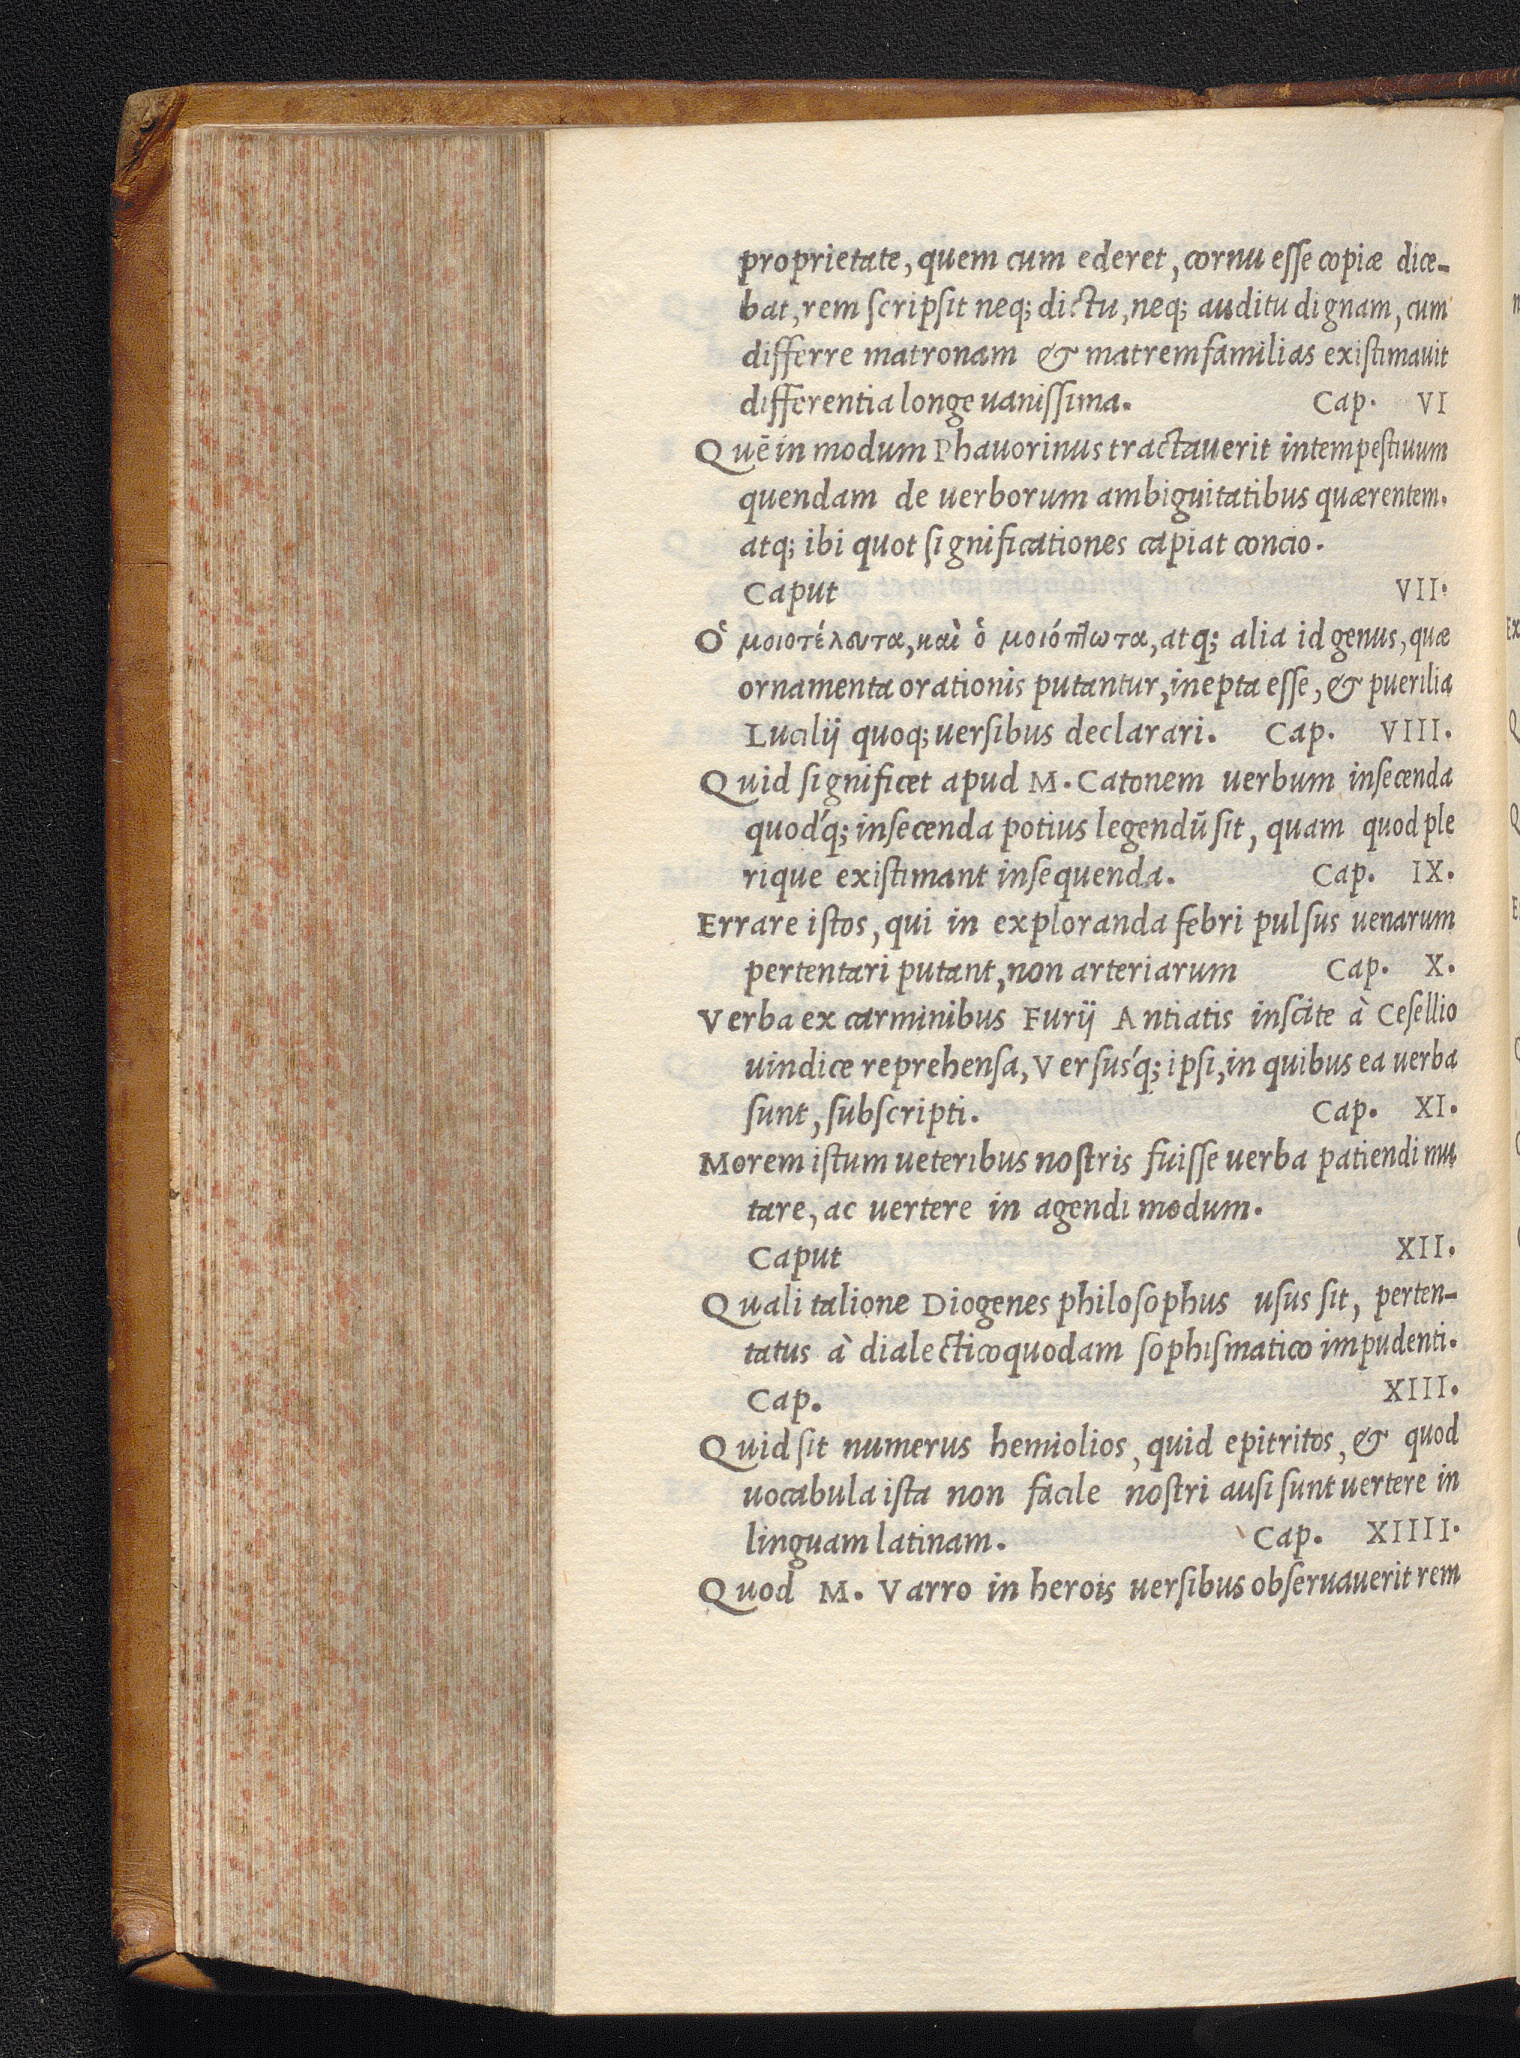 proprietate, quem cum ederet, cornu eſſe copiæ dice-
bat, rem ſcripſit neq; dictu, neq; auditu dignam, cum
differre matronam & matremfamilias exiſtimauit
differentia longe uaniſſima. Cap. VI
Quē in modum Phauorinus tractauerit intempeſtiuum
quendam de uerborum ambiguitatibus quærentem.
atq; ibi quot ſignificationes capiat concio.
Caput VII.
Ὁ μοιοτέλευτα, καὶ ὁ μοιόπτωτα, atq; alia id genus, quæ
ornamenta orationis putantur, inepta eſſe, & puerilia
Lucilij quoq; uerſibus declarari. Cap. VIII.
Quid ſignificet apud M. Catonem uerbum inſecenda
quod́q; inſecenda potius legendū ſit, quam quod ple
rique exiſtimant inſequenda. Cap. IX.
Errare iſtos, qui in exploranda febri pulſus uenarum
pertentari putant, non arteriarum Cap. X.
Verba ex carminibus Furij Antiatis inſcite à Ceſellio
uindice reprehenſa, Verſuśq; ipſi, in quibus ea uerba
ſunt, ſubſcripti. Cap. XI.
Morem iſtum ueteribus noſtris fuiſſe uerba patiendi mu
tare, ac uertere in agendi modum.
Caput XII.
Quali talione Diogenes philoſophus uſus ſit, perten-
tatus à dialectico quodam ſophiſmatico impudenti.
Cap. XIII.
Quid ſit numerus hemiolios, quid epitritos, & quod
uocabula iſta non facile noſtri auſi ſunt uertere in
linguam latinam. Cap. XIIII.
Quod M. Varro in herois uerſibus obſeruauerit rem